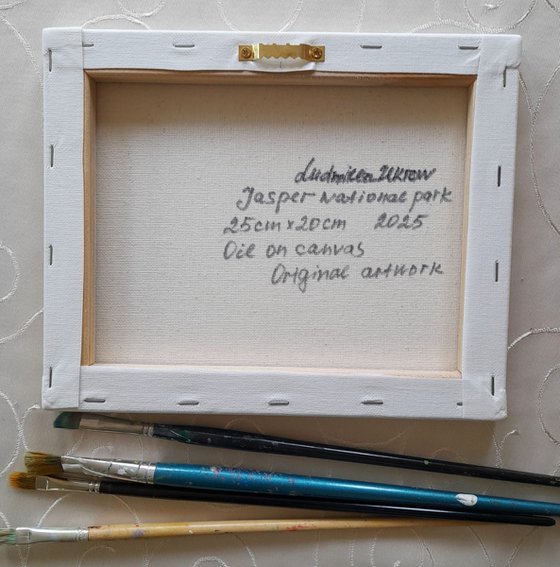 Ludmilla Ukrow
Jasper National park
25cm x 20cm 2025
Oil on canvas
Original artwork